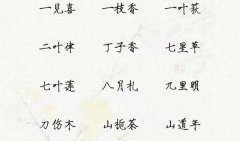 一见喜 一枝香 一叶荻
二叶律 丁子香 七里草
七叶莲 八月札 九里明
刀伤木 山栀茶 山道年